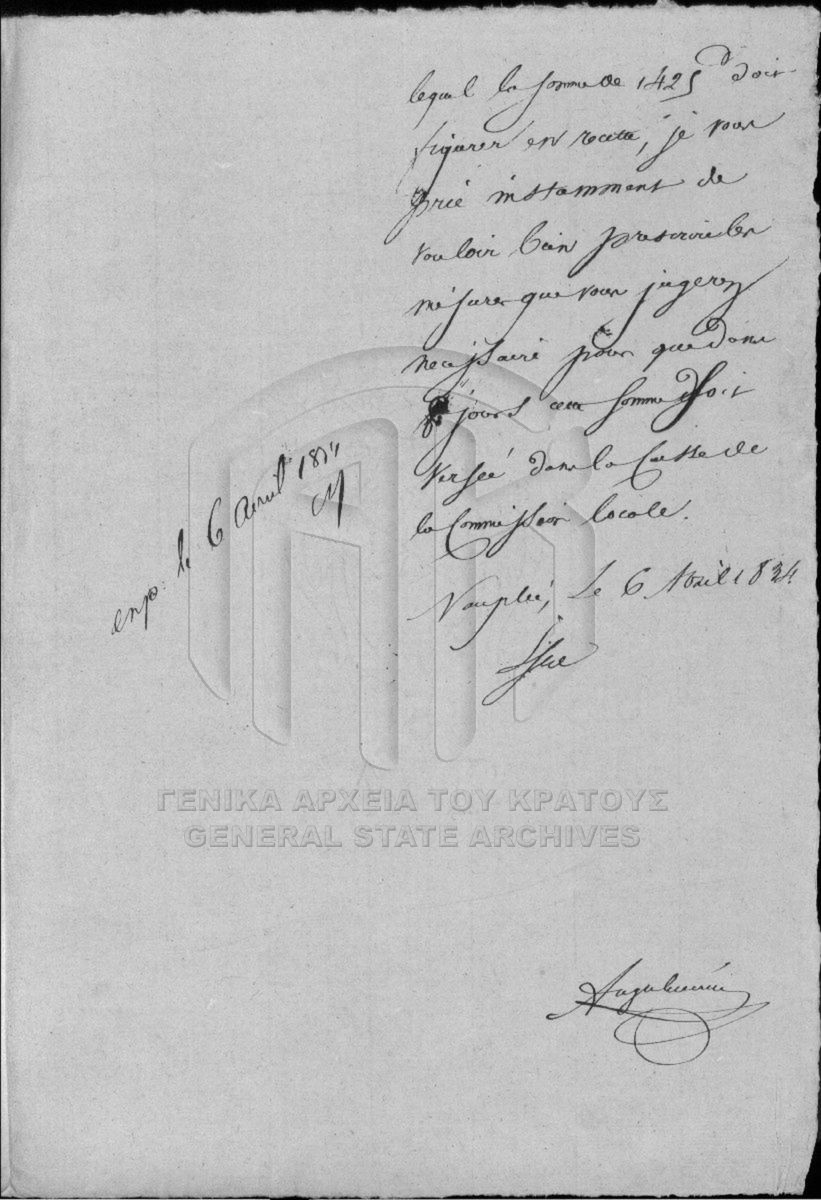 lequel la somme de 1425 D doit
figurer en recette, je vous
prie instamment de
vouloir bien prescrire les
mesures que vous jugerez
necessaire pour que dans
8 jours cette somme soit
versée dans la Caisse de
la Commission locale.
Nauplie, Le 6 Avril 1834.
exp. le 6 Avril 1834
ΓΕΝΙΚΑ ΑΡΧΕΙΑ ΤΟΥ ΚΡΑΤΟΥΣ
GENERAL STATE ARCHIVES